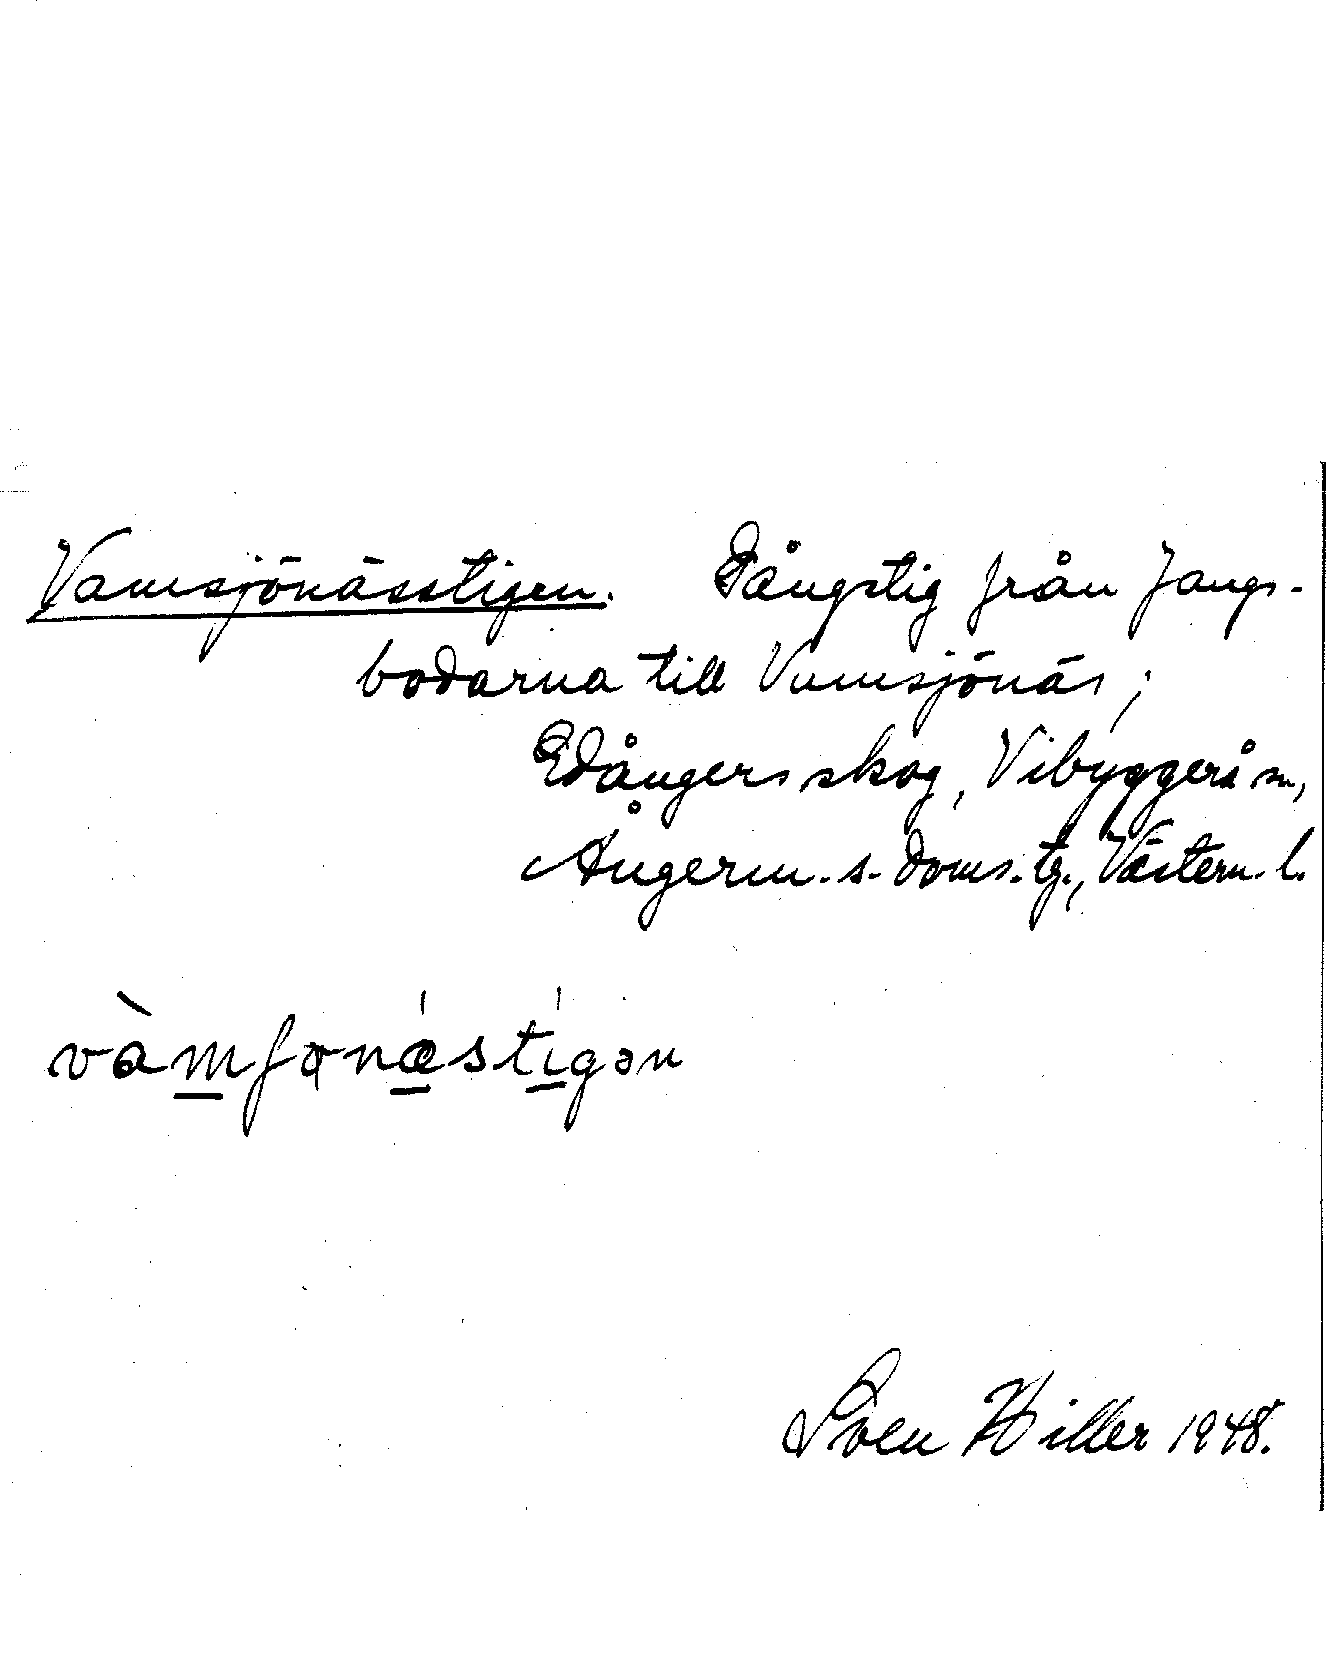 Vamsjönässtigen. Gångstig från Jangs-
bodarna till Vamsjönäs;
Edångers skog, Vibyggerå sn,
Ångerm. s. doms. tg., Västern. l.
vàmʃɵnǽstígən
Sven Hiller 1948.